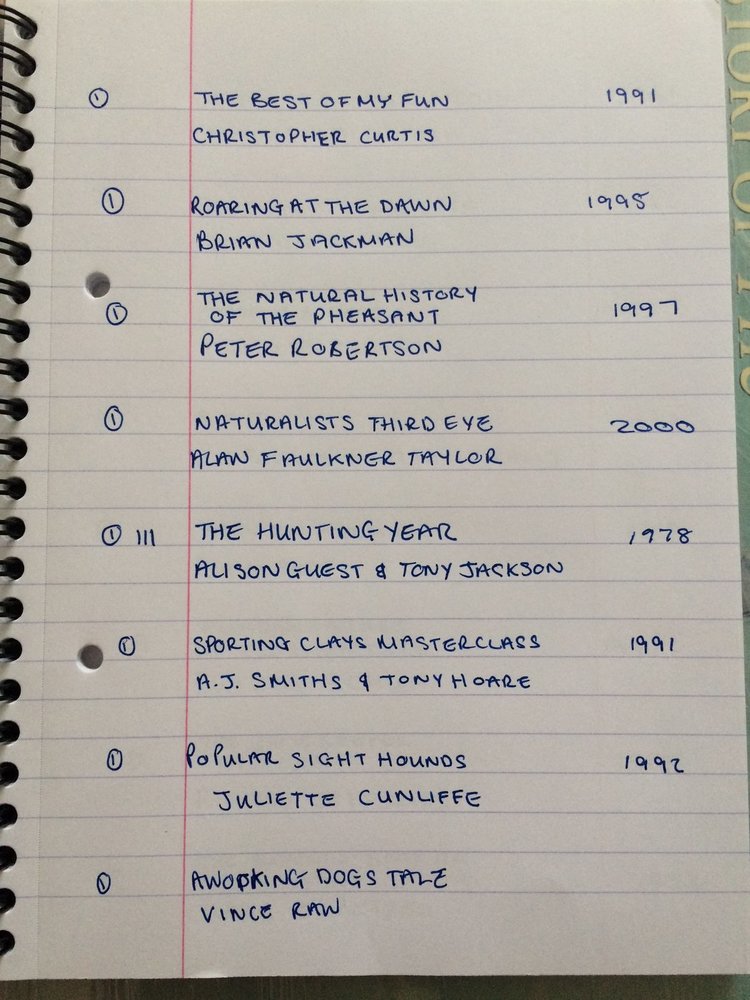 ① THE BEST OF MY FUN 1991
CHRISTOPHER CURTIS
① ROARING AT THE DAWN 1995
BRIAN JACKMAN
THE NATURAL HISTORY
① OF THE PHEASANT 1997
PETER ROBERTSON
① NATURALISTS THIRD EYE 2000
ALAN FAULKNER TAYLOR
① III THE HUNTING YEAR 1978
ALISON GUEST & TONY JACKSON
① SPORTING CLAYS MASTERCLASS 1991
A.J. SMITHS & TONY HOARE
① POPULAR SIGHT HOUNDS 1992
JULIETTE CUNLIFFE
① A WORKING DOGS TALE
VINCE RAW